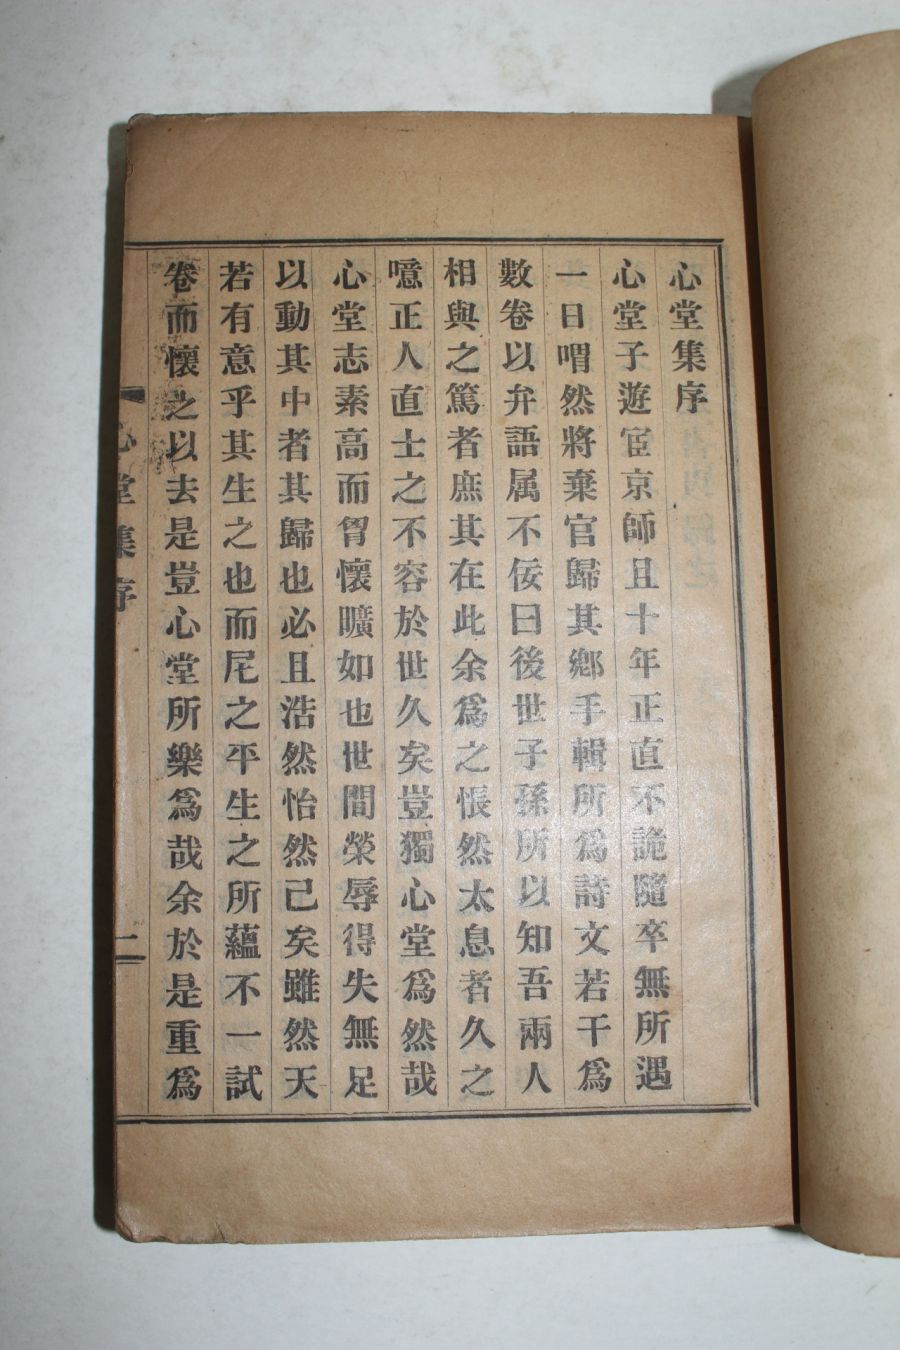 心堂集序
心堂子遊宦京師且十年正直不詭隨卒無所遇
一日喟然將棄官歸其鄕手輯所爲詩文若干爲
數卷以弁語属不佞曰後世子孫所以知吾兩人
相與之篤者庶其在此余爲之悵然太息者久之
噫正人直士之不容於世久矣豈獨心堂爲然哉
心堂志素高而胷懷曠如也世間榮辱得失無足
以動其中者其歸也必且浩然怡然已矣雖然天
若有意乎其生之也而戹之平生之所蘊不一試
卷而懷之以去是豈心堂所樂爲哉余於是重爲
心堂集序